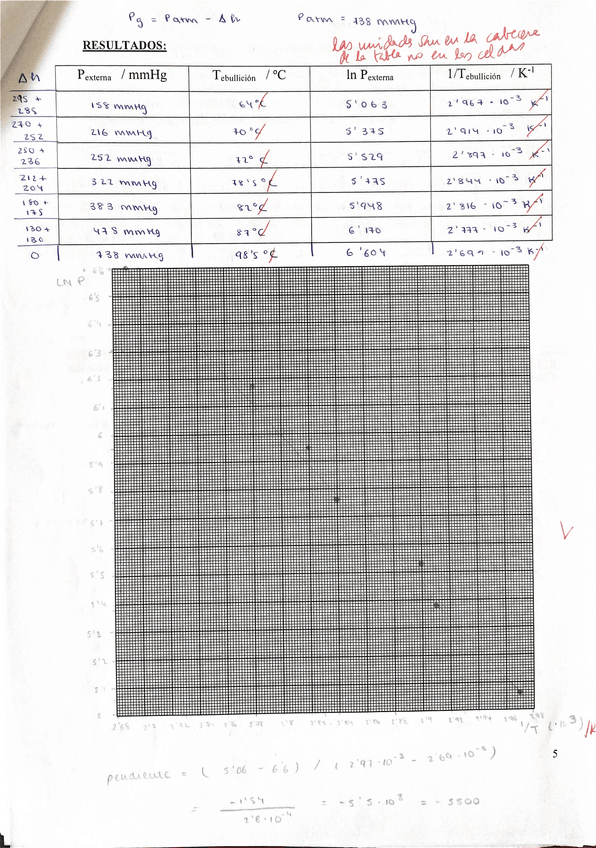 Pg = Patm - Δh    Patm = 738 mmHg
las unidades van en la cabecera
de la tabla no en las celdas
RESULTADOS:
Δh    Pexterna / mmHg    Tebullición / ºC    ln Pexterna    1/Tebullición / K-1
295 + 285    158 mmHg    64°C    5'063    2'967·10-3 K-1
270 + 252    216 mmHg    70°C    5'375    2'914·10-3 K-1
250 + 236    252 mmHg    72°C    5'529    2'897·10-3 K-1
212 + 204    322 mmHg    78'5°C    5'775    2'844·10-3 K-1
180 + 175    383 mmHg    82°C    5'948    2'816·10-3 K-1
130 + 130    478 mmHg    87°C    6'170    2'777·10-3 K-1
0    738 mmHg    98'5°C    6'604    2'691·10-3 K-1
LN P
6'6
6'5
6'4
6'3
6'2
6'1
6
5'9
5'8
5'7
5'6
5'5
5'4
5'3
5'2
5'1
5
2'68 2'7 2'72 2'74 2'76 2'78 2'8 2'82 2'84 2'86 2'88 2'9 2'92 2'94 2'96 2'98
1/T (·10^3) /K
5
pendiente = (5'06 - 6'6) / (2'97·10-3 - 2'69·10-3)
= -1'54 / 2'8·10-4 = -5'5·10^3 = -5500